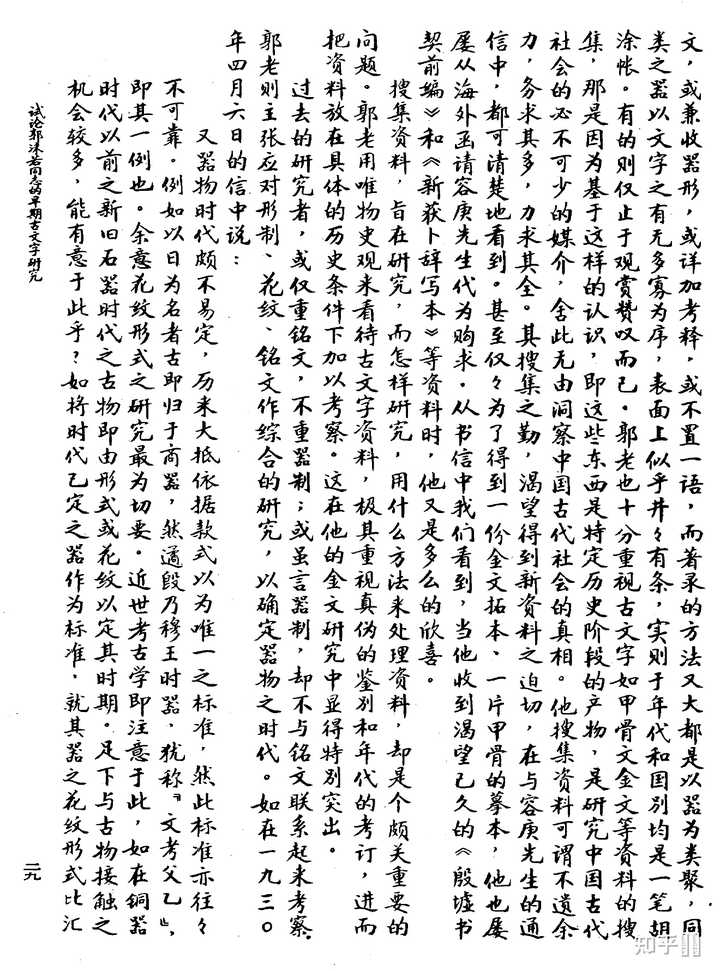 文，或兼收器形，或详加考释，或不置一语，而著录的方法又大都是以器为类聚，同
类之器以文字之有无多寡为序，表面上似乎井々有条，实则于年代和国别均是一笔胡
涂帐。有的则仅止于观赏赞叹而已。郭老也十分重视古文字如甲骨文金文等资料的搜
集，那是因为基于这样的认识，即这些东西是特定历史阶段的产物，是研究中国古代
社会的必不可少的媒介，舍此无由洞察中国古代社会的真相。他搜集资料可谓不遗余
力，务求其多，力求其全。其搜集之勤，渴望得到新资料之迫切，在与容庚先生的通
信中，都可清楚地看到。甚至仅々为了得到一份金文拓本、一片甲骨的摹本，他也屡
屡从海外函请容庚先生代为购求。从书信中我们看到，当他收到渴望已久的《殷墟书
契前编》和《新获卜辞写本》等资料时，他又是多么的欣喜。
搜集资料，旨在研究，而怎样研究，用什么方法来处理资料，却是个颇关重要的
问题。郭老用唯物史观来看待古文字资料，极其重视真伪的鉴别和年代的考订，进而
把资料放在具体的历史条件下加以考察。这在他的金文研究中显得特别突出。
过去的研究者，或仅重铭文，不重器制；或虽言器制，却不与铭文联系起来考察。
郭老则主张应对形制、花纹、铭文作综合的研究，以确定器物之时代。如在一九三〇
年四月六日的信中说：
又器物时代颇不易定，历来大抵依据款式以为唯一之标准，然此标准亦往々
不可靠。例如以日为名者古即归于商器，然遹段乃穆王时器，犹称『文考父乙』，
即其一例也。余意花纹形式之研究最为切要。近世考古学即注意于此，如在铜器
时代以前之新旧石器时代之古物即由形式或花纹以定其时期。足下与古物接触之
机会较多，能有意于此乎？如将时代已定之器作为标准，就其器之花纹形式比汇
试论郭沫若同志的早期古文字研究
二九
知乎